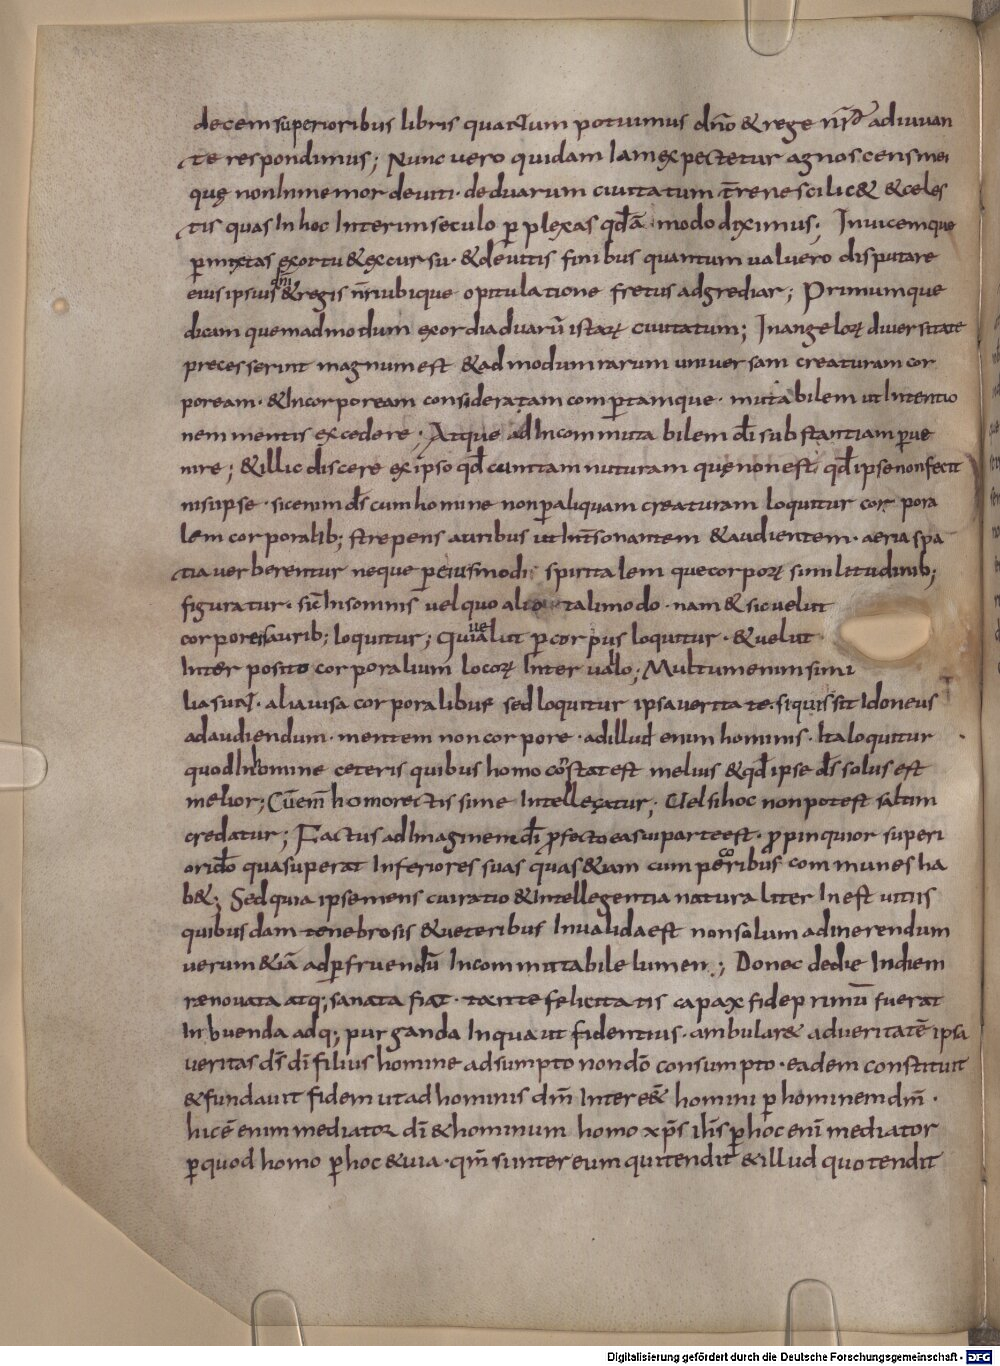 decem superioribus libris quantum potuimus dño & rege nr̃o adiuuan
te respondimus; Nunc uero quid a me iam expectetur agnoscens mei
quę non Inmemor debiti· de duarum ciuitatum t̃rene scilic& & celes
tis quas In hoc Interim seculo p̱plexas qđā modo diximus; Inuicemque
p̱mixtas exortu & excursu· & debitis finibus quantum ualuero disputare
eius ipsius dñi & regis nr̃i ubique opitulatione fretus adgrediar; Primumque
dicam quemadmodum exordia duarū istarꝝ ciuitatum; In angelorꝝ diuersitate
precesserint magnum est & admodum rarum uniuersam creaturam cor
poream· & Incorpoream consideratam compertamque· mutabilem ut Intentio
nem mentis excedere; Atque ad Incommutabilem dī substantiam p̱ue
nire; & illic discere ex ipso qđ cunctam naturam quę non est qđ ipse non fecit
nisi ipse· sic enim ds̄ cum homine non p̱ aliquam creaturam loquitur corpora
lem corporalib; strepens auribus ut Int̃ sonantem & audientem· aeria spa
tia uerberentur neque p̱ eiusmodi spiritalem que corporꝝ similitudinib;
figuratur· sic̄ In somnis uel quo alio tali modo· nam & sic uelut
corporeis aurib; loquitur; Quia uelut p̱ corpus loquitur· & uelut
Inter posito corporalium locorꝝ Inter uallo; Multum enim simi
lia sunt· alia uisa corporalibus sed loquitur ipsa ueritate· si quis sit Idoneus
ad audiendum· mentem non corpore· ad illud enim hominis· Ita loquitur
quod In homine ceteris quibus homo cōstat est melius & qđ ipse ds̄ solus est
melior; Cū em̄ homo rectissime Intellegatur; Uel si hoc non potest saltim
credatur; Factus ad Imaginem dī p̱fecto ea sui parte est· p̱pinquior superi
ori dō qua superat Inferiores suas quas &iam cum pecoribus communes ha
b&; Sed quia ipse mens cui ratio & Intellegentia naturaliter In est uitiis
quibusdam tenebrosis & ueteribus Inualida est non solum ad Inerendum
uerum &iā ad p̱fruendū Incommutabile lumen; Donec de die In diem
renouata atq; sanata fiat· tante felicitatis capax fide primū fuerat
Inbuenda adq; purganda In qua ut fidentius· ambular& ad ueritatē ipsa
ueritas ds̄ dī filius homine adsumpto non dō consumpto· eadem constituit
& fundauit fidem ut ad hominis dm̄ Inter ē& homini p̱ hominem dm̄·
hic ē enim mediator dī & hominum homo xp̄s ih̄s p̱ hoc eni mediator
p̱ quod homo p̱ hoc & uia· qm̄ si inter eum qui tendit & illud quo tendit
Digitalisierung gefördert durch die Deutsche Forschungsgemeinschaft - DFG